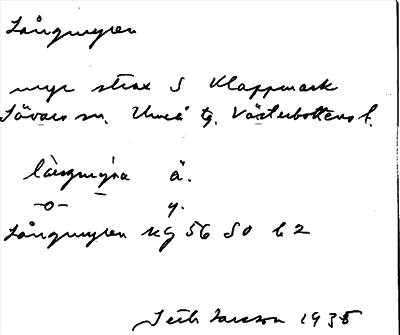 Långmyren
myr strax S Klappmark
Sävars sn. Umeå tg. Västerbottens l.
làŋmýra ä.
-o- y.
Långmyren kg 56 SO b2
Larsson 1935